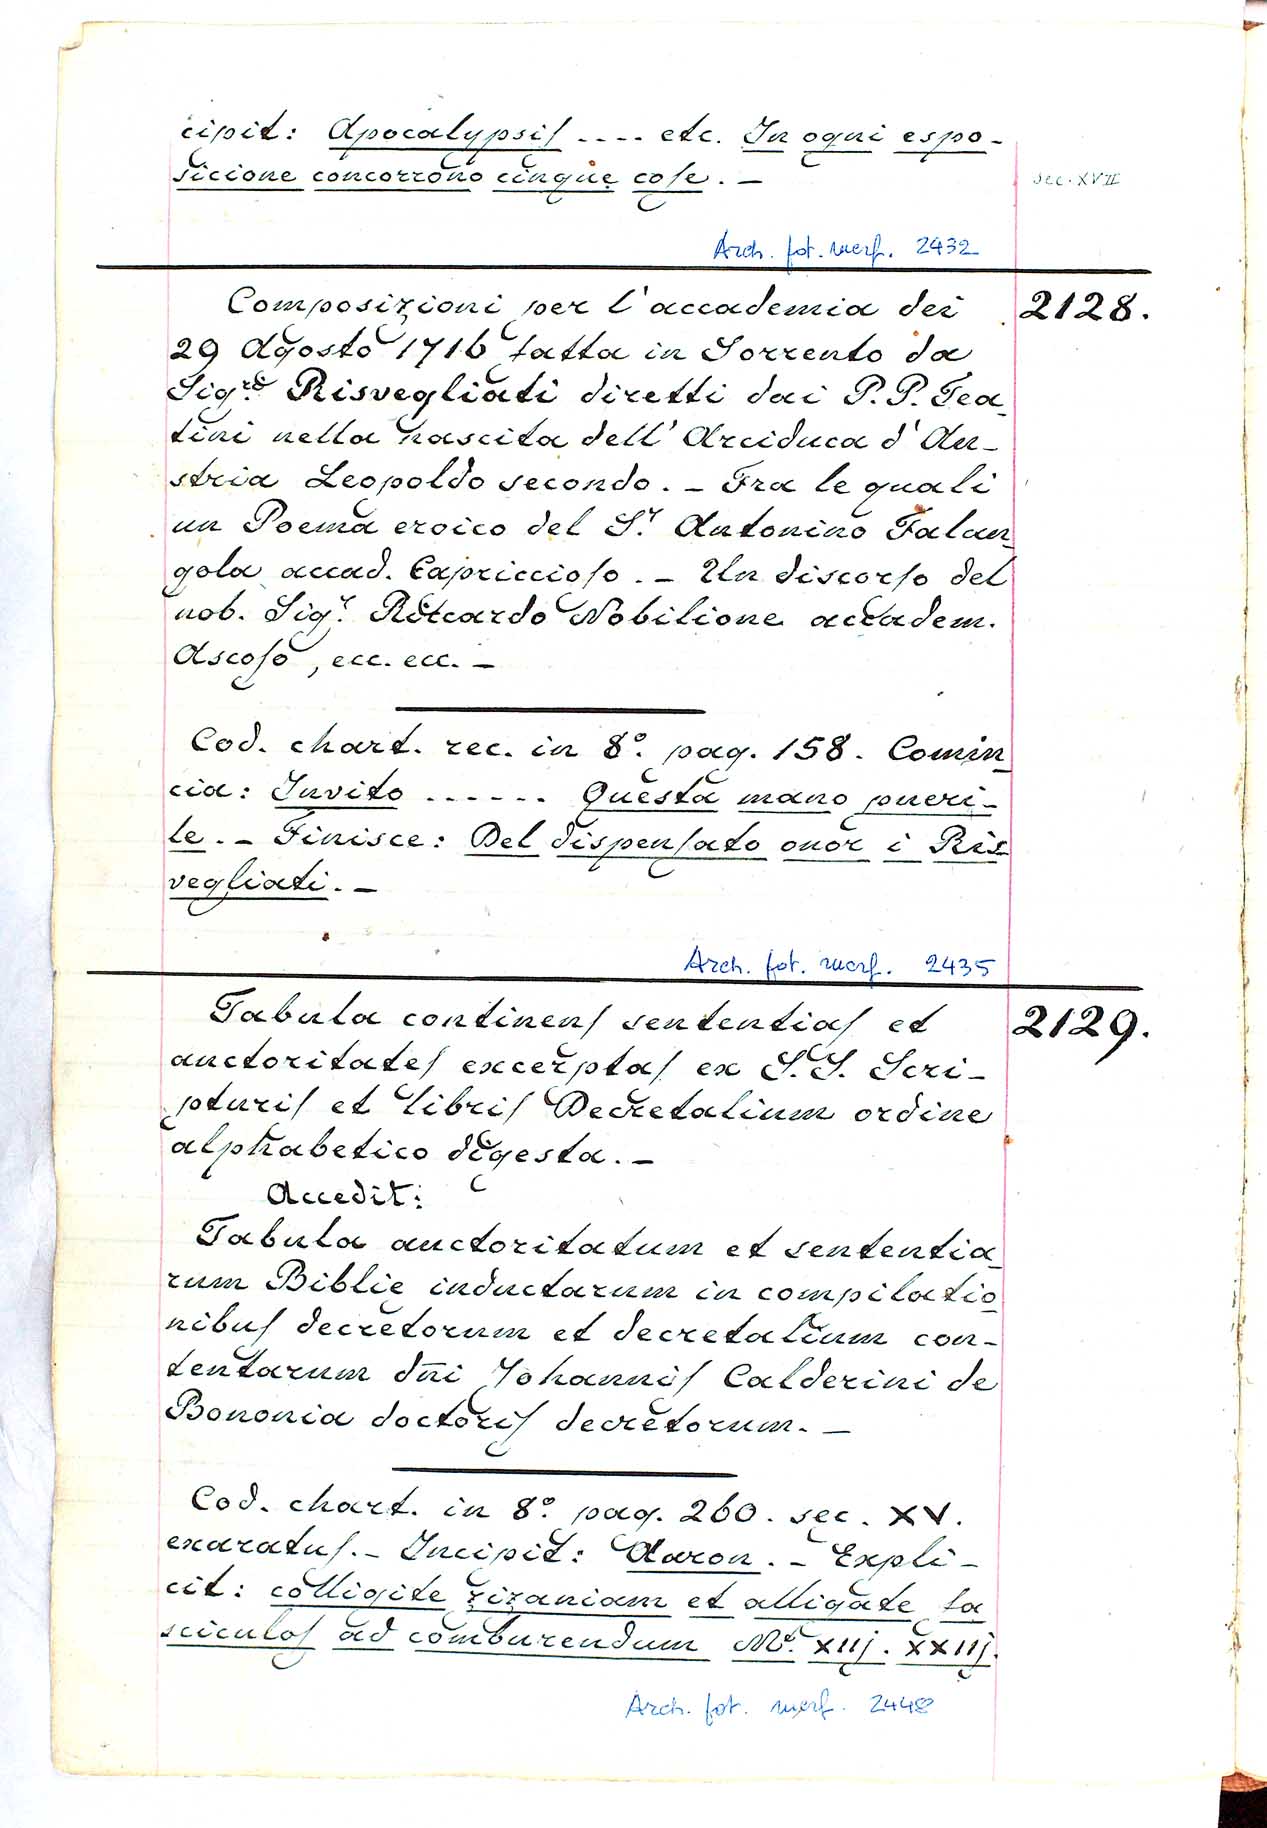 cipit: Apocalypsis .... etc. In ogni espo-
sicione concorrono cinque cose. —
sec. XVII
Arch. fot. merf. 2432
Composizioni per l'accademia dei
2128.
29 Agosto 1716 fatta in Sorrento da
Sig.ri Risvegliati diretti dai P.P. Tea-
tini nella nascita dell'Arciduca d'Au-
stria Leopoldo secondo. — Fra le quali
un Poema eroico del S.r Antonino Falan-
gola accad. Capriccioso. — Un discorso del
nob. Sig.r Riccardo Nobilione accadem.
Ascoso, ecc. ecc. —
Cod. chart. rec. in 8.º pag. 158. Comin-
cia: Invito ...... Questa mano pueri-
le. — Finisce: Del dispensato onor i Ris-
vegliati. —
Arch. fot. merf. 2435
Tabula continens sententias et
2129.
auctoritates excerptas ex S.S. Scri-
pturis et libris Decretalium ordine
alphabetico digesta. —
Accedit:
Tabula auctoritatum et sententia-
rum Biblie inductarum in compilatio-
nibus decretorum et decretalium con-
tentarum dñi Johannis Calderini de
Bononia doctoris decretorum. —
Cod. chart. in 8.º pag. 260. sec. XV.
exaratus. — Incipit: Aaron. — Expli-
cit: colligite zizaniam et alligate fa
sciculos ad comburendum Mt. xiij. xxiij.
Arch. fot. merf.